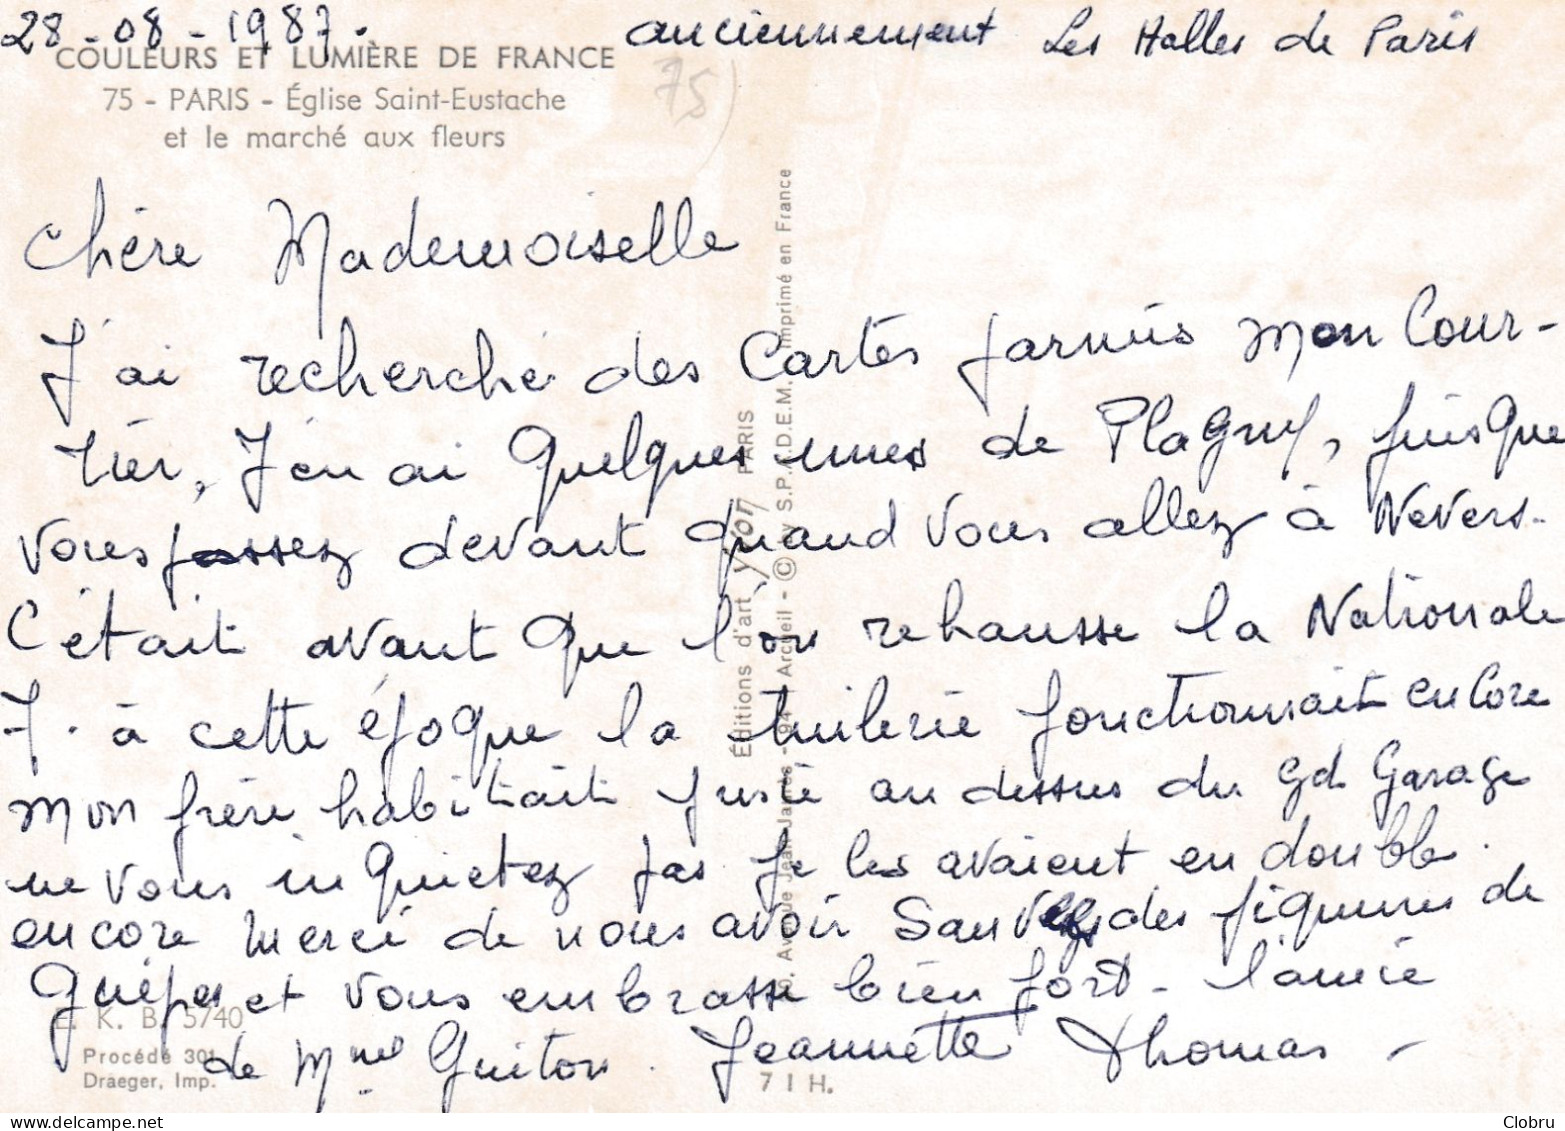 28-08-1987.
anciennement Les Halles de Paris
COULEURS ET LUMIÈRE DE FRANCE
75 - PARIS - Église Saint-Eustache
et le marché aux fleurs
75
Chère Mademoiselle
J'ai recherché des Cartes parmis mon Cour-
rier, J'en ai quelques unes de Plagny, puisque
vous passez devant quand vous allez à Nevers.
C'était avant que l'on rehausse la Nationale
7. à cette époque la tuilerie fonctionnait encore
mon frère habitait juste au dessus du gd Garage
ne vous inquietez pas Je les avaient en double.
encore merci de nous avoir Sauvez des piqures de
Guêpes et vous embrasse bien fort - l'amie
de Mme Guiton. Jeannette Thomas -
E. K. B. 5740
Procédé 301
Draeger, Imp.
71 H.
Éditions d'art yvon PARIS
Avenue Jean-Jaurès - 94 Arcueil - © by S.P.A.D.E.M. Imprimé en France
delcampe.net
Clobru